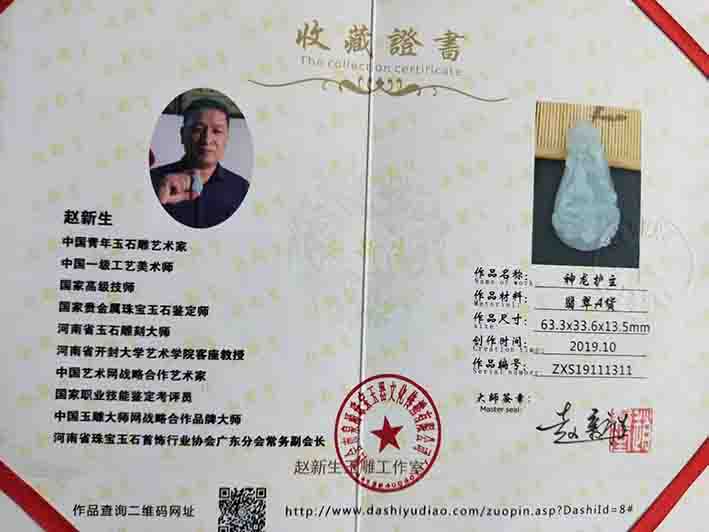 收藏證書
The collection certificate
赵新生
中国青年玉石雕艺术家
中国一级工艺美术师
国家高级技师
国家贵金属珠宝玉石鉴定师
河南省玉石雕刻大师
河南省开封大学艺术学院客座教授
中国艺术网战略合作艺术家
国家职业技能鉴定考评员
中国玉雕大师网战略合作品牌大师
河南省珠宝玉石首饰行业协会广东分会常务副会长
作品名称: 神龙护主
Name of work
作品材料: 翡翠A货
Material
作品尺寸: 63.3x33.6x13.5mm
size
创作时间: 2019.10
Creation time
作品编号: ZXS19111311
大师签章:
Master seal
赵新生
赵新生玉雕工作室
作品查询二维码网址
http://www.dashiyudiao.com/zuopin.asp?DashiId=8#